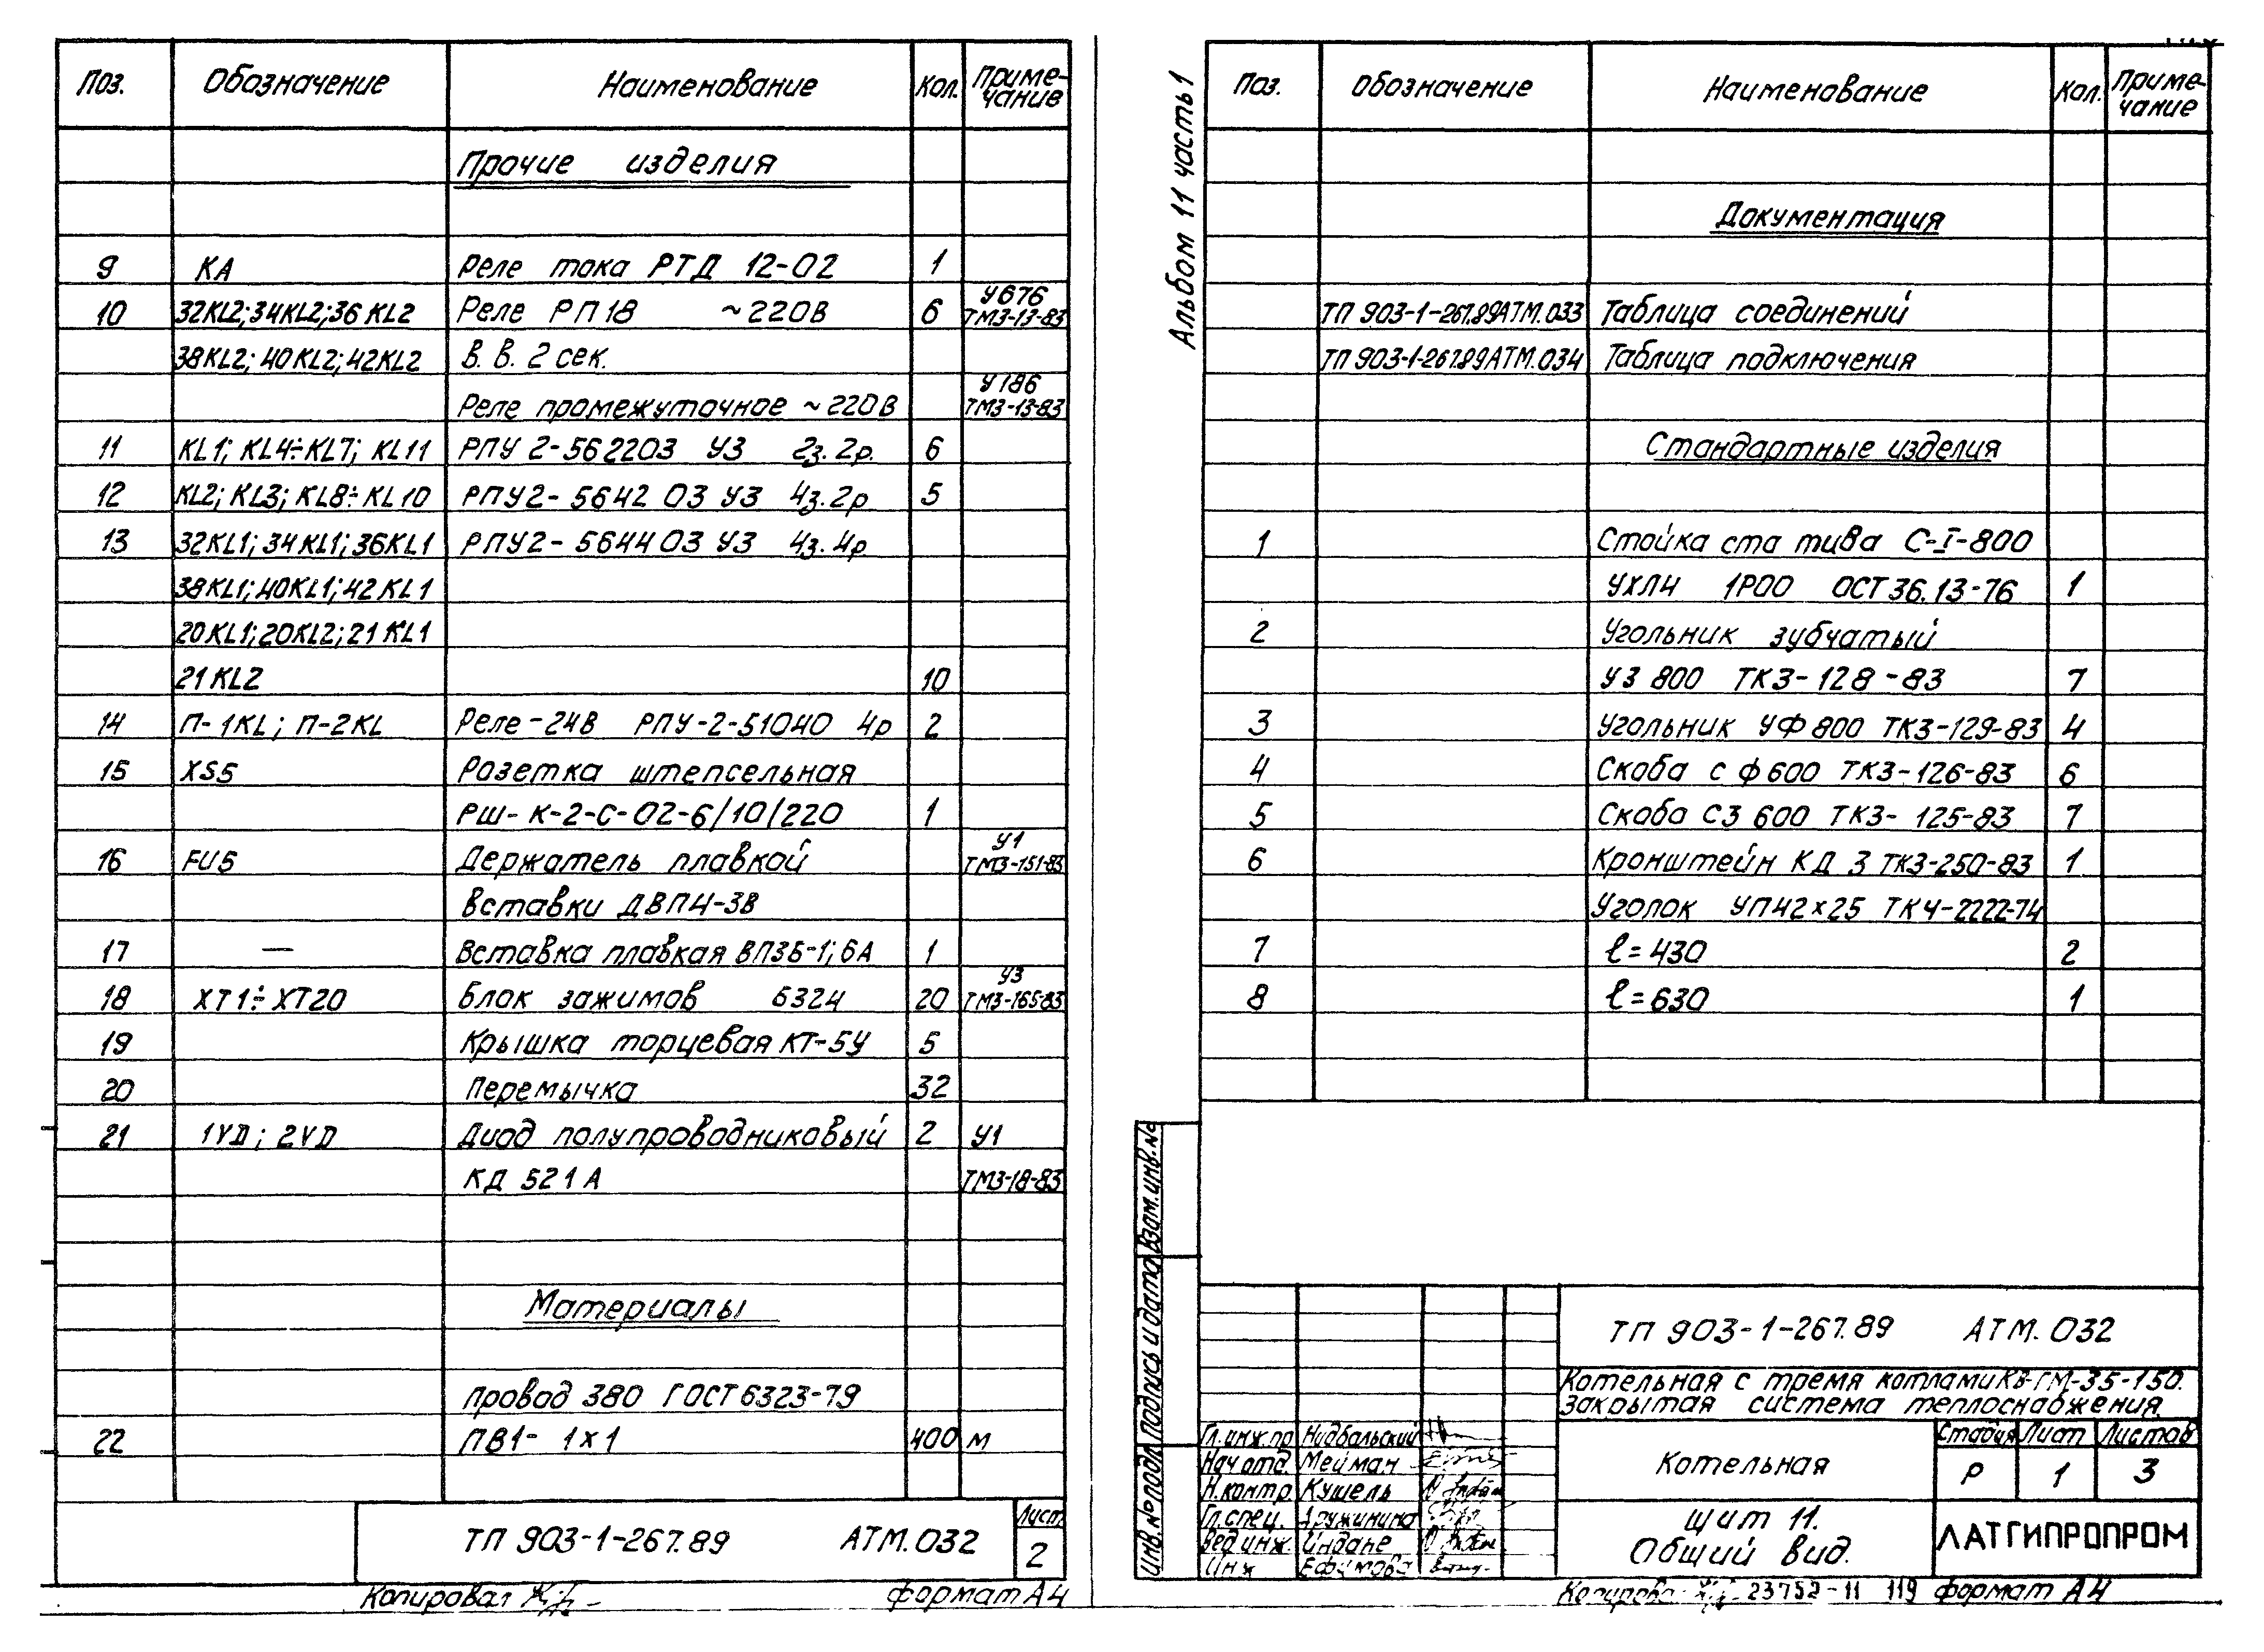 Поз. Обозначение Наименование Кол. Приме-
чание
Прочие изделия
9 КА Реле тока РТД 12-02 1
У676
10 32KL2; 34KL2; 36KL2 Реле РП18 ~220В 6 ТМ3-13-83
38KL2; 40KL2; 42KL2 В. В. 2 сек.
У186
Реле промежуточное ~220В ТМ3-13-83
11 KL1; KL4÷KL7; KL11 РПУ 2-562203 У3 2з. 2р. 6
12 KL2; KL3; KL8÷KL10 РПУ2-564203 У3 4з. 2р 5
13 32KL1; 34KL1; 36KL1 РПУ2-564403 У3 4з. 4р
38KL1; 40KL1; 42KL1
20KL1; 20KL2; 21KL1
21KL2 10
14 П-1KL; П-2KL Реле-24В РПУ-2-51040 4р 2
15 XS5 Розетка штепсельная
РШ-К-2-С-02-6/10/220 1
У1
16 FU5 Держатель плавкой ТМ3-151-83
вставки ДВП4-3В
17 — Вставка плавкая ВП3Б-1; 6А 1
У3
18 ХТ1÷ХТ20 Блок зажимов Б324 20 ТМ3-165-83
19 Крышка торцевая КТ-5У 5
20 Перемычка 32
21 1VD; 2VD Диод полупроводниковый 2 У1
КД 521А ТМ3-18-83
Материалы
Провод 380 ГОСТ 6323-79
22 ПВ1- 1х1 400 м
ТП 903-1-267.89 АТМ.032
Лист
2
Копировал
формат А4
Альбом 11 часть 1
Поз. Обозначение Наименование Кол. Приме-
чание
Документация
ТП 903-1-267.89АТМ.033 Таблица соединений
ТП 903-1-267.89АТМ.034 Таблица подключения
Стандартные изделия
1 Стойка статива С-I-800
УХЛ4 1Р00 ОСТ 36.13-76 1
2 Угольник зубчатый
УЗ 800 ТК3-128-83 7
3 Угольник УФ 800 ТК3-129-83 4
4 Скоба СФ 600 ТК3-126-83 6
5 Скоба СЗ 600 ТК3-125-83 7
6 Кронштейн КД 3 ТК3-250-83 1
Уголок УП42х25 ТК4-2222-74
7 ℓ=430 2
8 ℓ=630 1
Взам.инв.№
Подпись и дата
Инв.№подл
ТП 903-1-267.89 АТМ.032
Котельная с тремя котлами КВ-ГМ-35-150.
Закрытая система теплоснабжения.
Гл.инж.пр Нидбальский
Нач отд. Мейман
Н.контр. Кушель
Гл.спец. Дружинина
Вед инж. Индане
Инж Ефимова
Котельная
Стадия Лист Листов
Р 1 3
Щит 11.
Общий вид.
ЛАТГИПРОПРОМ
Копировал 23752-11 119 формат А4